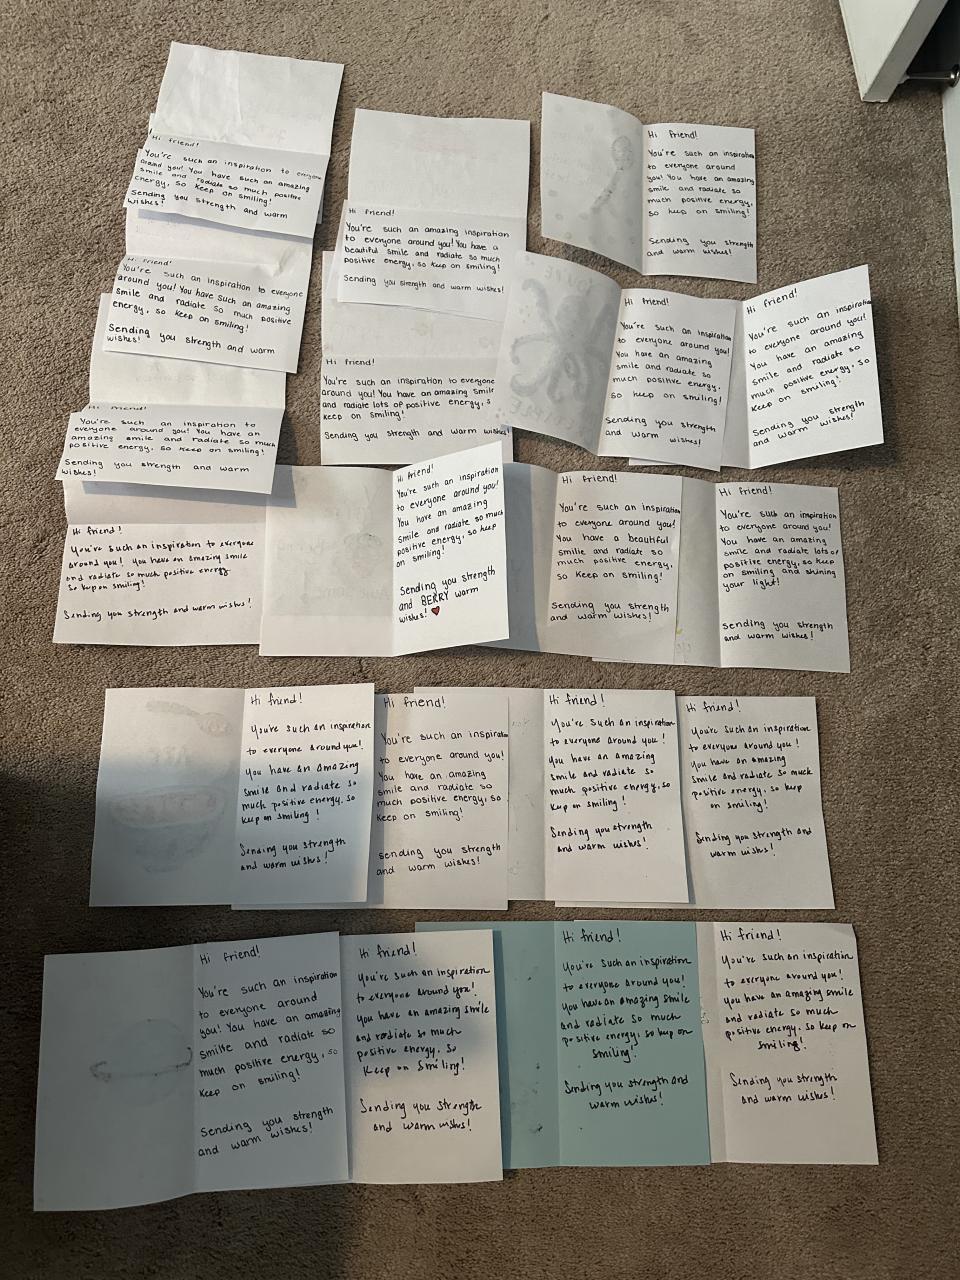 Hi friend!
You're such an inspiration to everyone
around you! You have such an amazing
smile and radiate so much positive
energy, so keep on smiling!
Sending you strength and warm
wishes!
Hi friend!
You're such an amazing inspiration
to everyone around you! You have a
beautiful smile and radiate so much
positive energy, so keep on smiling!
Sending you strength and warm wishes!
Hi friend!
You're such an inspiration
to everyone around
you! You have an amazing
smile and radiate so
much positive energy,
so keep on smiling!
Sending you strength
and warm wishes!
Hi friend!
You're such an inspiration to everyone
around you! You have such an amazing
smile and radiate so much positive
energy, so keep on smiling!
Sending you strength and warm
wishes!
Hi friend!
You're such an inspiration to everyone
around you! You have an amazing smile
and radiate lots of positive energy, s
keep on smiling!
Sending you strength and warm wishes!
Hi friend!
You're such an inspiration
to everyone around you!
You have an amazing
smile and radiate so
much positive energy,
so keep on smiling!
Sending you strength
and warm wishes!
Hi friend!
You're such an inspiration
to everyone around you!
You have an amazing
smile and radiate so
much positive energy, so
keep on smiling!
Sending you strength
and warm wishes!
Hi friend!
You're such an inspiration to
everyone around you! You have an
amazing smile and radiate so much
positive energy, so keep on smiling!
Sending you strength and warm
wishes!
Hi friend!
You're such an inspiration to everyone
around you! You have an amazing smile
and radiate so much positive energy
so keep on smiling!
Sending you strength and warm wishes!
Hi friend!
You're such an inspiration
to everyone around you!
You have an amazing
smile and radiate so much
positive energy, so keep
on smiling!
Sending you strength
and BERRY warm
wishes!
Hi friend!
You're such an inspiration
to everyone around you!
You have a beautiful
smile and radiate so
much positive energy,
so keep on smiling!
Sending you strength
and warm wishes!
Hi friend!
You're such an inspiration
to everyone around you!
You have an amazing
smile and radiate lots of
positive energy, so keep
on smiling and shining
your light!
Sending you strength
and warm wishes!
Hi friend!
You're such an inspiration
to everyone around you!
You have an amazing
smile and radiate so
much positive energy, so
keep on smiling!
Sending you strength
and warm wishes!
Hi friend!
You're such an inspiration
to everyone around you!
You have an amazing
smile and radiate so
much positive energy, so
keep on smiling!
Sending you strength
and warm wishes!
Hi friend!
You're such an inspiration
to everyone around you!
You have an amazing
smile and radiate so
much positive energy, so
keep on smiling!
Sending you strength
and warm wishes!
Hi friend!
You're such an inspiration
to everyone around you!
You have an amazing
smile and radiate so much
positive energy, so keep
on smiling!
Sending you strength and
warm wishes!
Hi friend!
You're such an inspiration
to everyone around
you! You have an amazing
smile and radiate so
much positive energy, so
keep on smiling!
Sending you strength
and warm wishes!
Hi friend!
You're such an inspiration
to everyone around you!
You have an amazing smile
and radiate so much
positive energy. So
keep on smiling!
Sending you strength
and warm wishes!
Hi friend!
You're such an inspiration
to everyone around you!
You have an amazing smile
and radiate so much
positive energy. so keep on
smiling!
Sending you strength and
warm wishes!
Hi friend!
You're such an inspiration
to everyone around you!
You have an amazing smile
and radiate so much
positive energy. So keep on
smiling!
Sending you strength
and warm wishes!